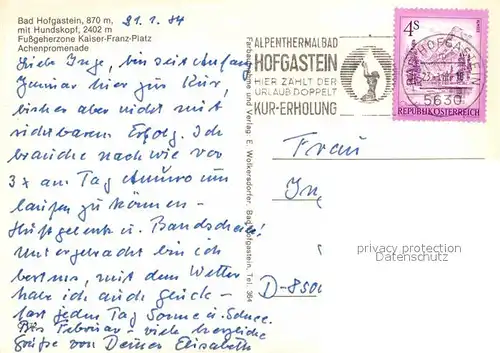 Bad Hofgastein, 870 m,
mit Hundskopf, 2402 m
Fußgeherzone Kaiser-Franz-Platz
Achenpromenade
21.1.84
Liebe Inge, bin seit Anfang
Januar hier zur Kur,
bisher aber nicht mit
sichtbarem Erfolg. Ich
brauche nach wie vor
3x am Tag um
laufen zu können -
Hüftgelenk u. Bandscheibe!
Untergebracht bin ich
bestens, mit dem Wetter
habe ich auch Glück -
fast jeden Tag Sonne u. Schnee.
Bis Februar - viele herzliche
Grüße von Deiner Elisabeth
Farbaufnahme und Verlag: E. Wolkersdorfer, Bad Hofgastein, Tel. 364
ALPENTHERMALBAD
HOFGASTEIN
HIER ZÄHLT DER
URLAUB DOPPELT
KUR-ERHOLUNG
HOFGASTEIN
5630
4S
REPUBLIK ÖSTERREICH
Frau
In
D-850
privacy protection
Datenschutz